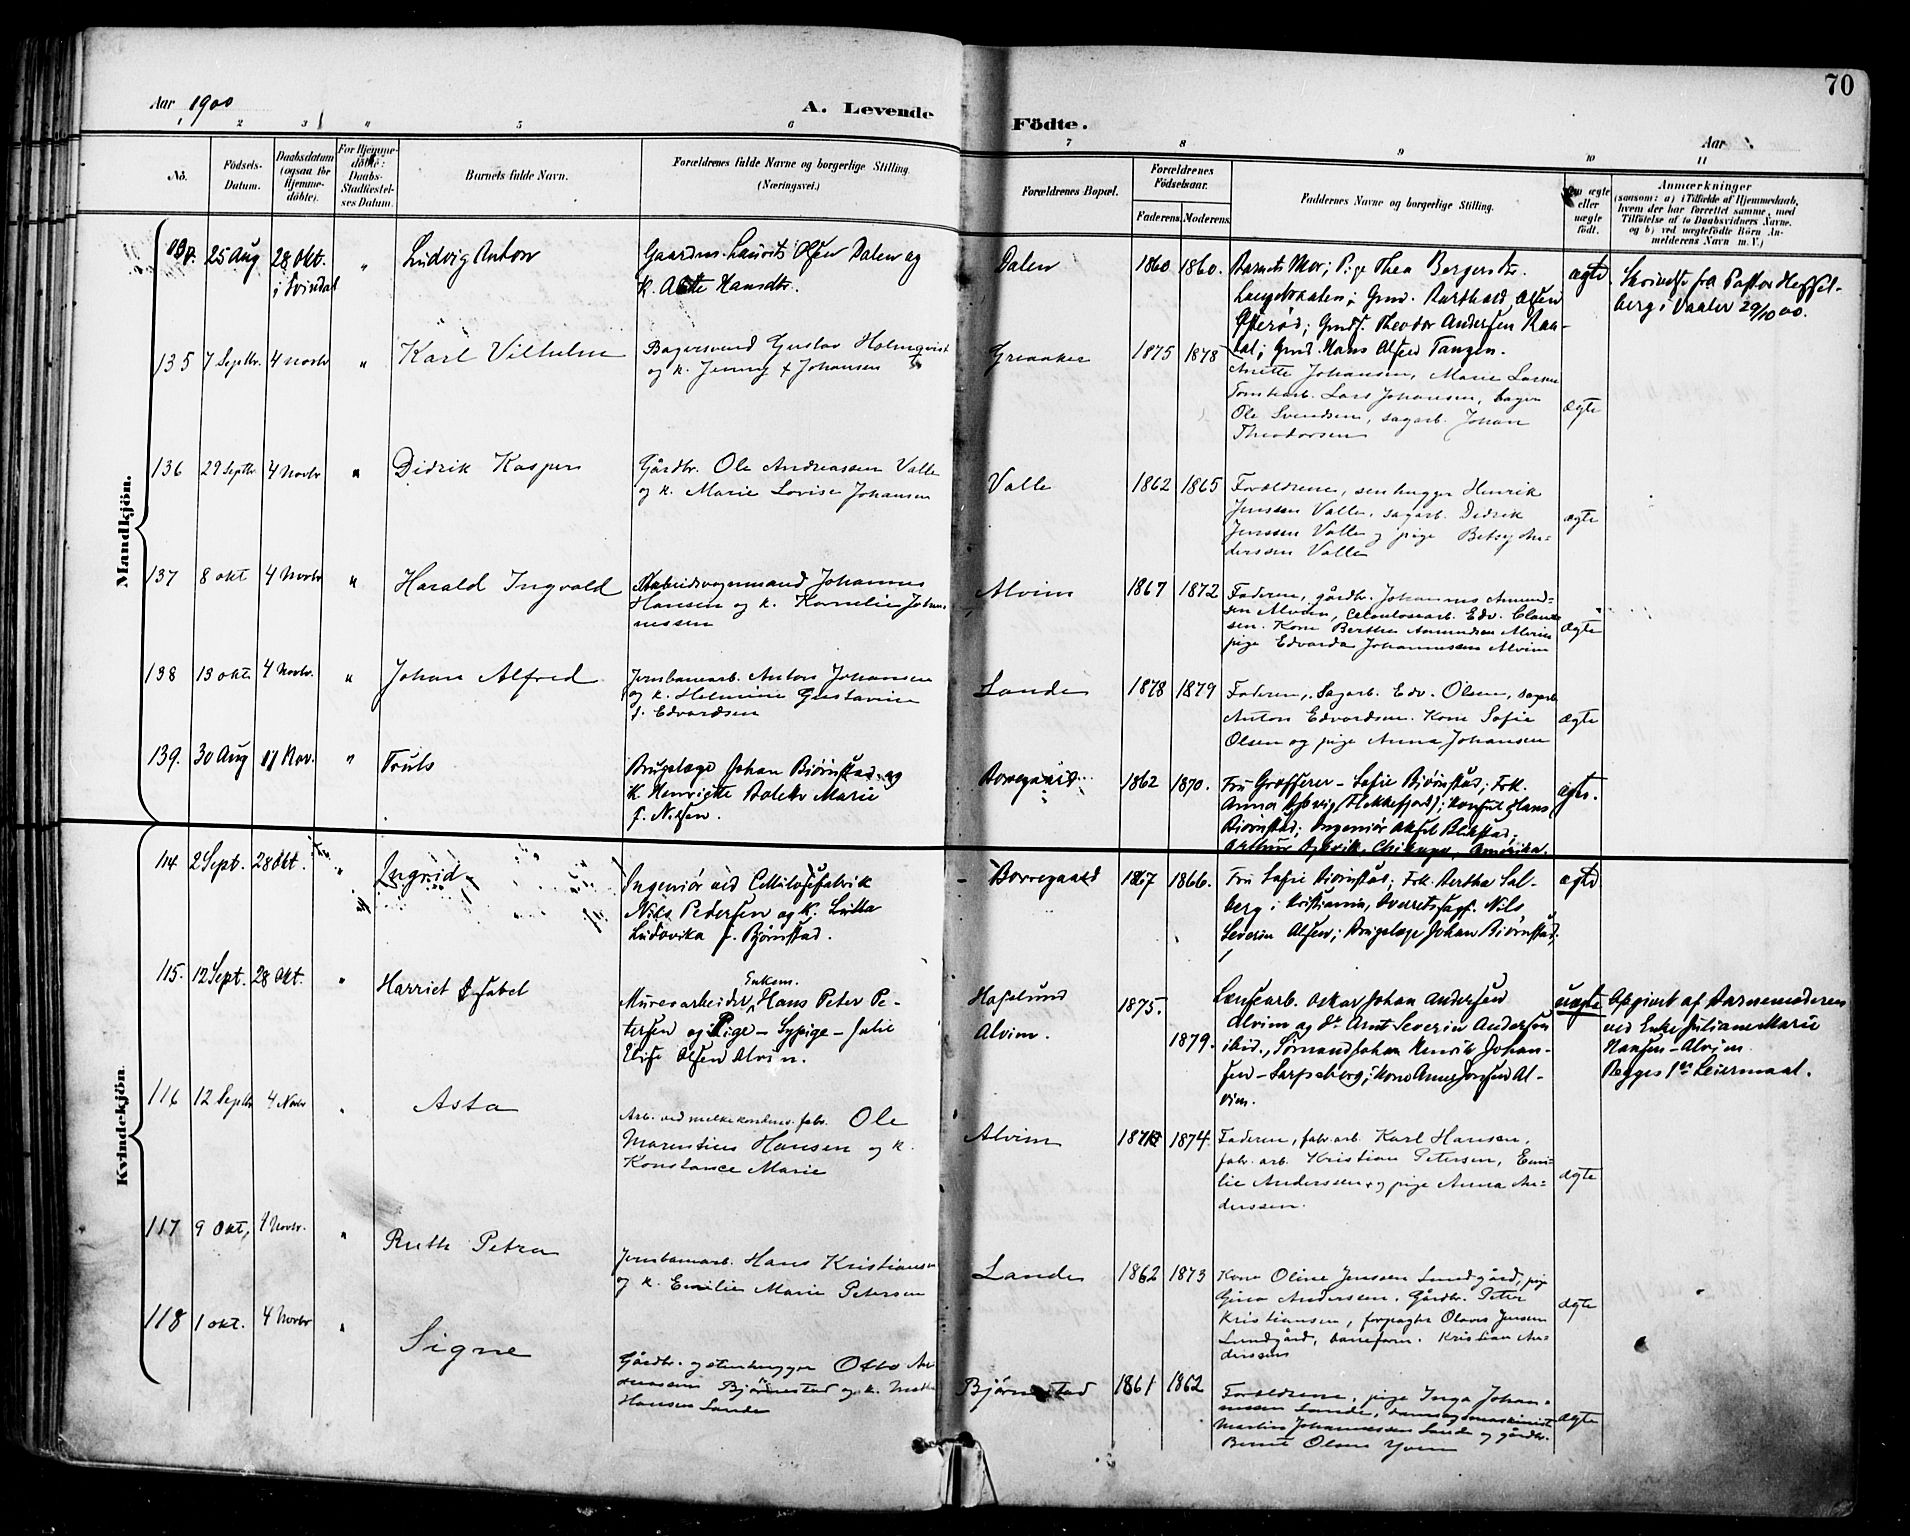 70
Aar 1900
A. Levende
Födte.
Aar
1 2 3 4 5 6 7 8 9 10 11
No.
Födsels-
Datum.
Daabsdatum
(ogsaa for
Hjemme-
döbte).
For Hjemme-
döbte:
Daabs-
Stadfæstel-
ses Datum.
Barnets fulde Navn.
Forældrenes fulde Navne og borgerlige Stilling
(Næringsvei.)
Forældrenes Bopæl.
Forældrenes
Födselsaar.
Faderens. Moderens.
Faddernes Navne og borgerlige Stilling.
Om ægte
eller
uægte
födt.
Anmærkninger
(saasom: a) i Tilfælde af Hjemmedaab,
hvem der har forrettet samme, med
Tilföielse af to Daabsvidners Navne.
og b) ved uægtefödte Börn An-
melderens Navn m. V.)
Mandkjön.
25 Aug 28 Okt. " Ludvig Anton
i Svindal
Gaardm. Laurits Olsen Dalen og
k. Hansdtr.
Dalen 1860 1860.
Barnets Mor; Pige Thea Bergersdtr.
Gmd. Barthold Olsen
Theodor Andersen
Gmd. Hans Olsen Tangen.
ægte
Skrivelse fra Pastor Hessel-
berg i Vaaler 29/10 00.
135 7 Septbr. 4 novbr " Karl Vilhelm
Bagersvend Gustav Holmqvist
og k. Jenny f Johansen
Greaaker 1875 1878
Anette Johansen, Marie Larsen
Tomtearb. Lars Johansen, bager
Ole Svendsen, sagarb. Johan
Theodorsen
ægte
136 29 Septbr 4 Novbr " Didrik Kaspers
Gårdbr. Ole Andreassen Valle
og k. Marie Lovise Johansen
Valle 1862 1865
Forældrene, stenhugger Henrik
Jenssen Valle, sagarb. Didrik
Jenssen Valle og pige Betsy An-
derssen Valle
ægte
137 8 okt 4 Novbr " Harald Ingvald
Arbeidsvognmand Johannes
Hansen og k. Kornelie Johan-
nessen
Alvim 1867 1872
Faderen, gårdbr. Johannes Amund-
sen Alvim, Celulosearb. Edv. Claus-
sen. Kone Berthe Aamundsen Alvim
pige Edvarda Johannessen Alvim
ægte
138 13 okt 4 Novbr. " Johan Alfred
Jernbanearb. Anton Johansen
og k. Helmine Gustavine
f. Edvardsen
Lande 1878 1879
Faderen, Sagarb. Edv. Olsen, sagarb
Anton Edvardsen. Kone Sofie
Olsen og pige Anna Johansen
ægte
139. 30 Aug 11 Nov. " Truls
Brugslæge Johan Bjørnstad og
k. Henriette Bolette Marie
f. Nilsen.
Borregaard. 1862 1870.
Fru Grosserer - Sofie Bjørnstad; Frk.
Anna (Flekkefjord); Konsul Hans
Bjørnstad; Ingeniør Aksel Blikstad;
Arthur Chikago, Amerika.
ægte.
Kvindekjön
114 2 Sept. 28 Okt. " Ingrid
Ingeniør ved Cellulosefabrik
Nils Pedersen og k.
Ludovika f. Bjørnstad.
Borregaard 1867 1866.
Fru Sofie Bjørnstad; Frk. Bertha Sal-
berg i Kristiania, Overretssagf. Nils
Severin Olsen; Brugslæge Johan Bjørnstad.
ægte
115. 12 Sept. 28 Okt. " Harriet Isabel
Enkem.
Muresarbeider, Hans Peter Pe-
tersen og Pige - Sypige - Julie
Elise Olsen Alvim.
Hafslund
Alvim.
1875.
1879.
Lænsearb. Oskar Johan Andersen
Alvim og do Arnt Severin Andersen
ibid., Sømand Johan Henrik Johan-
sen - Sarpsborg; Kone Anne Jensen Al-
vim.
uægte
Opgivet af Barnemoderen
ved Enke Juliane Marie
Hansen - Alvim
Begges 1ste Leiermaal.
116 12 Septbr 4 Novbr " Asta
Arb. ved melkekondens. fabr. Ole
Marentius Hansen og k.
Konstance Marie
Alvim 1874.
Faderen, fabr. arb. Karl Hansen,
fabr. arb. Kristian Petersen, Emi-
lie Anderssen og pige Anna An-
derssen.
ægte
117 9 Okt, 1 Novbr. " Ruth Petra
Jernbanearb. Hans Kristiansen
og k. Emilie Marie Petersen
Lande 1862 1873
Kone Oline Jenssen Lundgård, pige
Gina Anderssen, Gårdbr. Peter
Kristiansen, forpagter Olaves Jensen
Lundgård, baneform. Kristian An-
derssen
ægte
118 1 okt. 4 Novbr " Signe
Gårdbr. og stenhugger Otto An-
dreassen Bjørnestad og k.
Hansen Lande
Bjørnestad 1861 1862
Forældrene, pige Inga Johan-
nessen Lande, dampsagmaskinist
Martin Johannessen Lande og gårdbr.
Bernt Olsen Yven
ægte